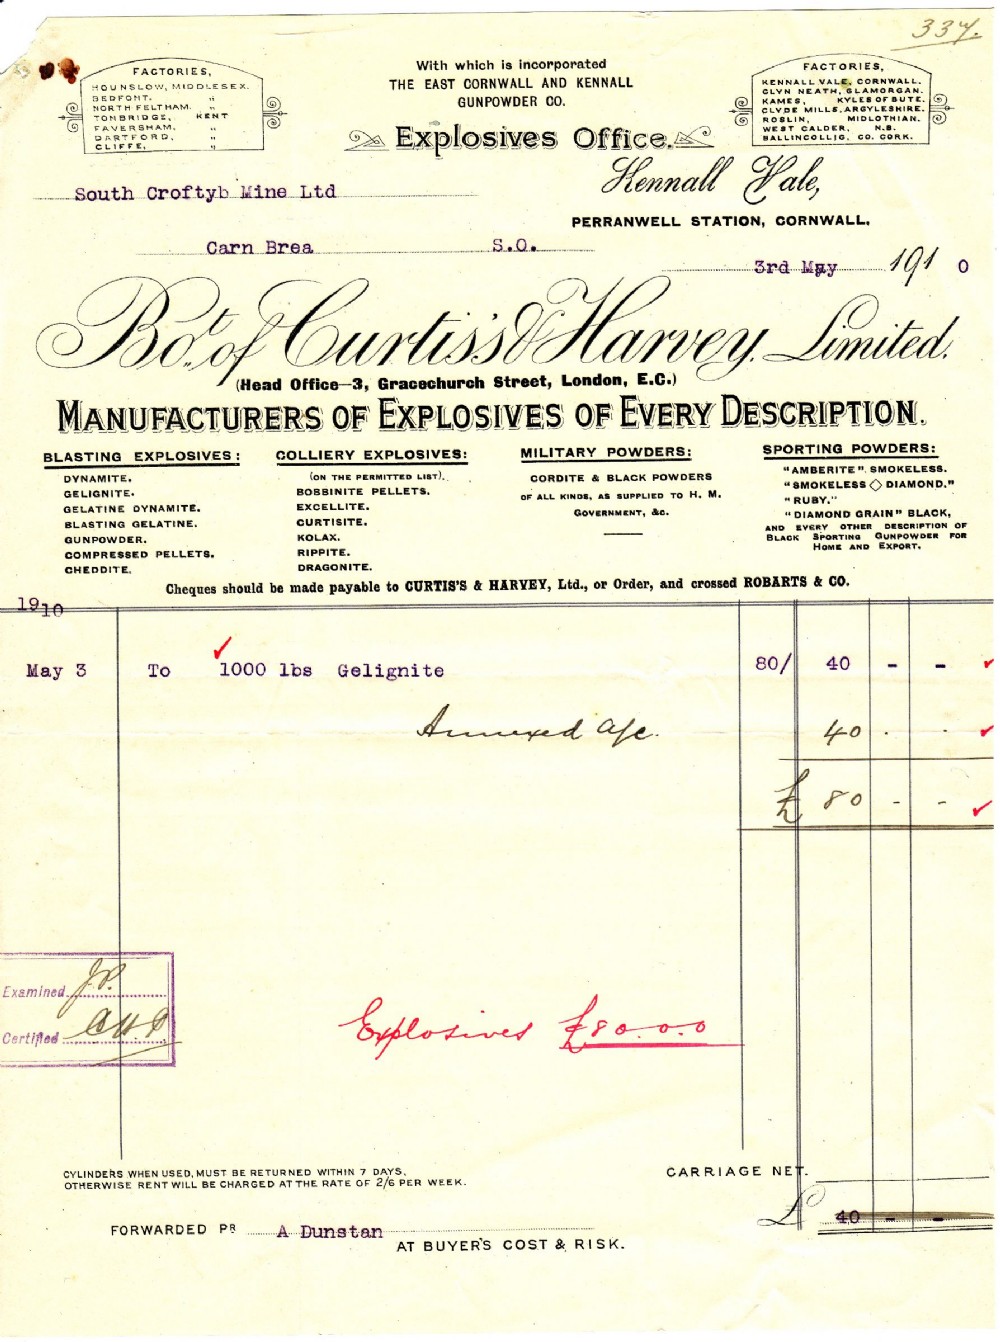 337.
FACTORIES,
HOUNSLOW, MIDDLESEX.
BEDFONT. "
NORTH FELTHAM. "
TONBRIDGE, KENT
FAVERSHAM, "
DARTFORD, "
CLIFFE, "
With which is incorporated
THE EAST CORNWALL AND KENNALL
GUNPOWDER CO.
Explosives Office.
FACTORIES,
KENNALL VALE, CORNWALL.
GLYN NEATH, GLAMORGAN.
KAMES, KYLES OF BUTE.
CLYDE MILLS, ARGYLESHIRE.
ROSLIN, MIDLOTHIAN.
WEST CALDER, N.B.
BALLINCOLLIG, CO. CORK.
Kennall Vale,
PERRANWELL STATION, CORNWALL.
South Croftyb Mine Ltd
Carn Brea S.O.
3rd May 1910
Bot. of Curtis's & Harvey, Limited.
(Head Office—3, Gracechurch Street, London, E.C.)
MANUFACTURERS OF EXPLOSIVES OF EVERY DESCRIPTION.
BLASTING EXPLOSIVES:
DYNAMITE.
GELIGNITE.
GELATINE DYNAMITE.
BLASTING GELATINE.
GUNPOWDER.
COMPRESSED PELLETS.
CHEDDITE.
COLLIERY EXPLOSIVES:
(ON THE PERMITTED LIST).
BOBBINITE PELLETS.
EXCELLITE.
CURTISITE.
KOLAX.
RIPPITE.
DRAGONITE.
MILITARY POWDERS:
CORDITE & BLACK POWDERS
OF ALL KINDS, AS SUPPLIED TO H. M.
GOVERNMENT, &c.
SPORTING POWDERS:
"AMBERITE" SMOKELESS.
"SMOKELESS ◇ DIAMOND."
"RUBY."
"DIAMOND GRAIN" BLACK,
AND EVERY OTHER DESCRIPTION OF
BLACK SPORTING GUNPOWDER FOR
HOME AND EXPORT.
Cheques should be made payable to CURTIS'S & HARVEY, Ltd., or Order, and crossed ROBARTS & CO.
1910
May 3 To 1000 lbs Gelignite 80/ 40 - -
Annexed a/c. 40 . .
£ 80 - -
Examined J.P.
Certified
Explosives £80.0.0
CYLINDERS WHEN USED, MUST BE RETURNED WITHIN 7 DAYS,
OTHERWISE RENT WILL BE CHARGED AT THE RATE OF 2/6 PER WEEK.
CARRIAGE NET.
£ 40 - -
FORWARDED PR A Dunstan
AT BUYER'S COST & RISK.